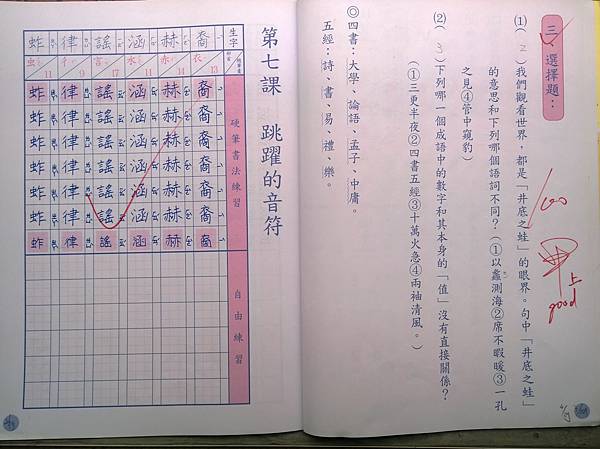 三、選擇題:
(1)(2)我們觀看世界,都是「井底之蛙」的眼界。句中「井底之蛙」
的意思和下列哪個語詞不同?(①以蠡測海②席不暇暖③一孔
之見④管中窺豹)
(2)(3)下列哪一個成語中的數字和其本身的「值」沒有直接關係?
(①三更半夜②四書五經③十萬火急④兩袖清風。)
◎四書:大學、論語、孟子、中庸。
五經:詩、書、易、禮、樂。
100
甲上
good
第七課 跳躍的音符
生字 裔 赫 涵 謠 律 蚱
衣 赤 水 言 彳 虫
13 14 11 17 9 11
硬筆書法練習
裔 赫 涵 謠 律 蚱
裔 赫 涵 謠 律 蚱
裔 赫 涵 謠 律 蚱
裔 赫 涵 謠 律 蚱
裔 赫 涵 謠 律 蚱
裔 赫 涵 謠 律 蚱
裔 赫 涵 謠 律 蚱
自由練習